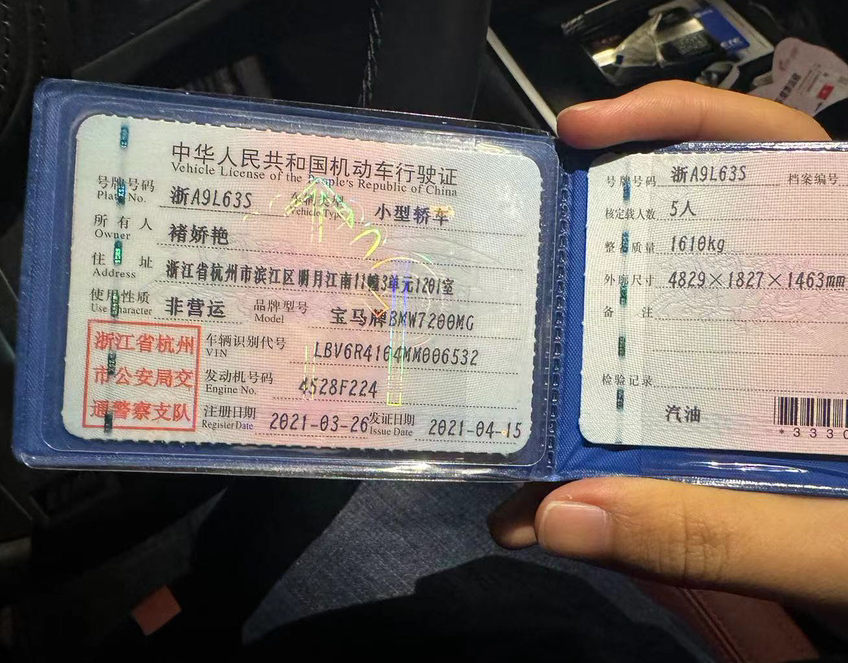 中华人民共和国机动车行驶证
Vehicle License of the People's Republic of China
号牌号码 浙A9L63S 车辆类型 小型轿车
Plate No. Vehicle Type
所有人 褚娇艳
Owner
住址 浙江省杭州市滨江区明月江南11幢3单元1201室
Address
使用性质 非营运 品牌型号 宝马牌BMW7200MG
Use Character Model
浙江省杭州
市公安局交
通警察支队
车辆识别代号 LBV6R4104MM006532
VIN
发动机号码 4528F224
Engine No.
注册日期 2021-03-26 发证日期 2021-04-15
Register Date Issue Date
号牌号码 浙A9L63S 档案编号
核定载人数 5人
整备质量 1610kg
外廓尺寸 4829×1827×1463mm
备注
检验记录
汽油
*3330